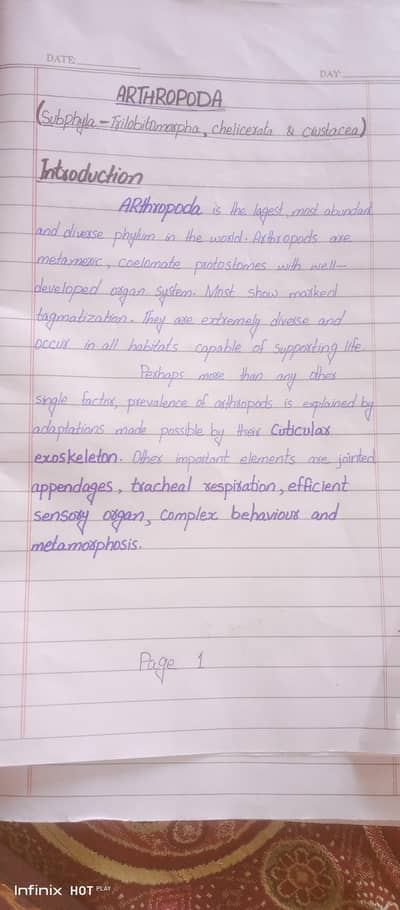 DATE:
DAY:
ARTHROPODA
(Subphyla - Trilobitomorpha, chelicerata & crustacea)
Introduction
ARthropoda is the lagest, most abundant
and diverse phylum in the world. Arthropods are
metameric, coelomate protostomes with well-
developed organ system. Most show marked
tagmatization. They are extremely diverse and
occur in all habitats capable of supporting life.
Perhaps more than any other
single factor, prevalence of arthropods is explained by
adaptations made possible by their Cuticular
exoskeleton. Other important elements are jointed
appendages, tracheal respiration, efficient
sensory organ, complex behaviour and
metamorphosis.
Page 1
Infinix HOT PLAY